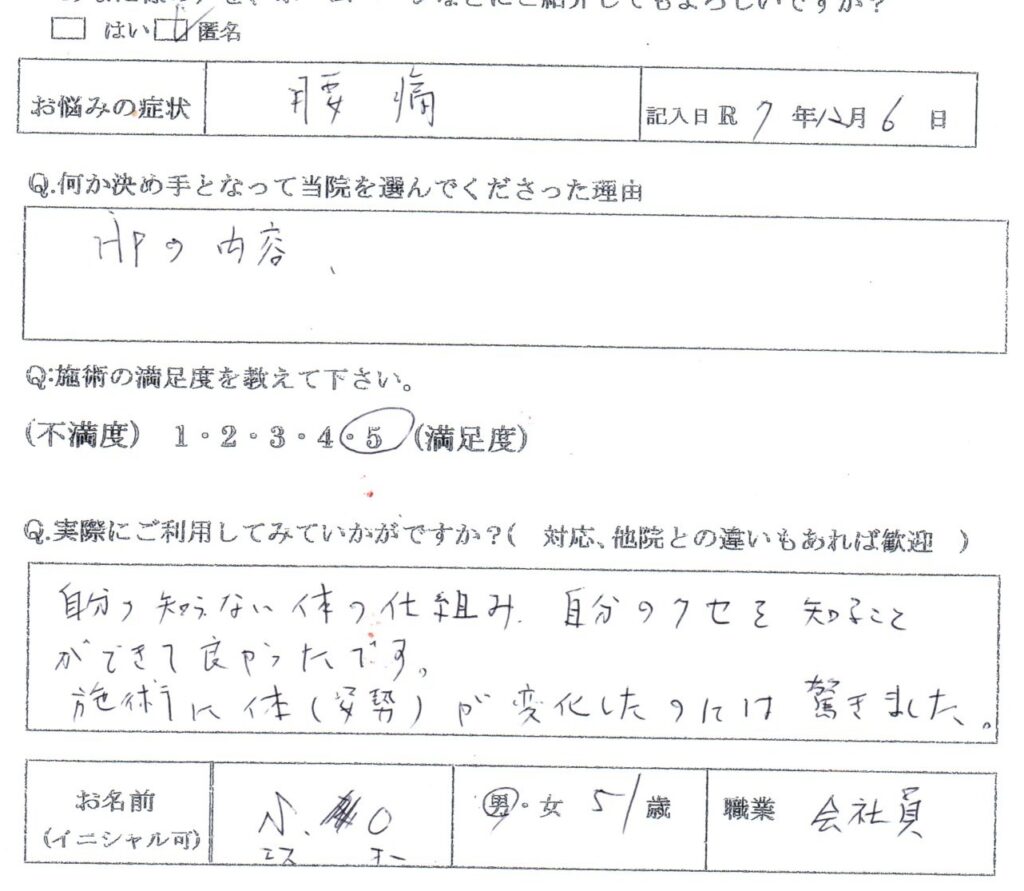 などにご紹介してもよろしいですか？
□ はい □ 匿名
お悩みの症状 腰痛 記入日R 7 年12月 6 日
Q.何か決め手となって当院を選んでくださった理由
HPの内容、
Q:施術の満足度を教えて下さい。
(不満度) 1・2・3・4・5 (満足度)
Q.実際にご利用してみていかがですか？( 対応、他院との違いもあれば歓迎 )
自分の知らない体の仕組み、自分のクセを知ること
ができて良かったです。
施術で体(姿勢)が変化したのには驚きました。
お名前 (イニシャル可) S. O 男・女 51歳 職業 会社員
エス オー